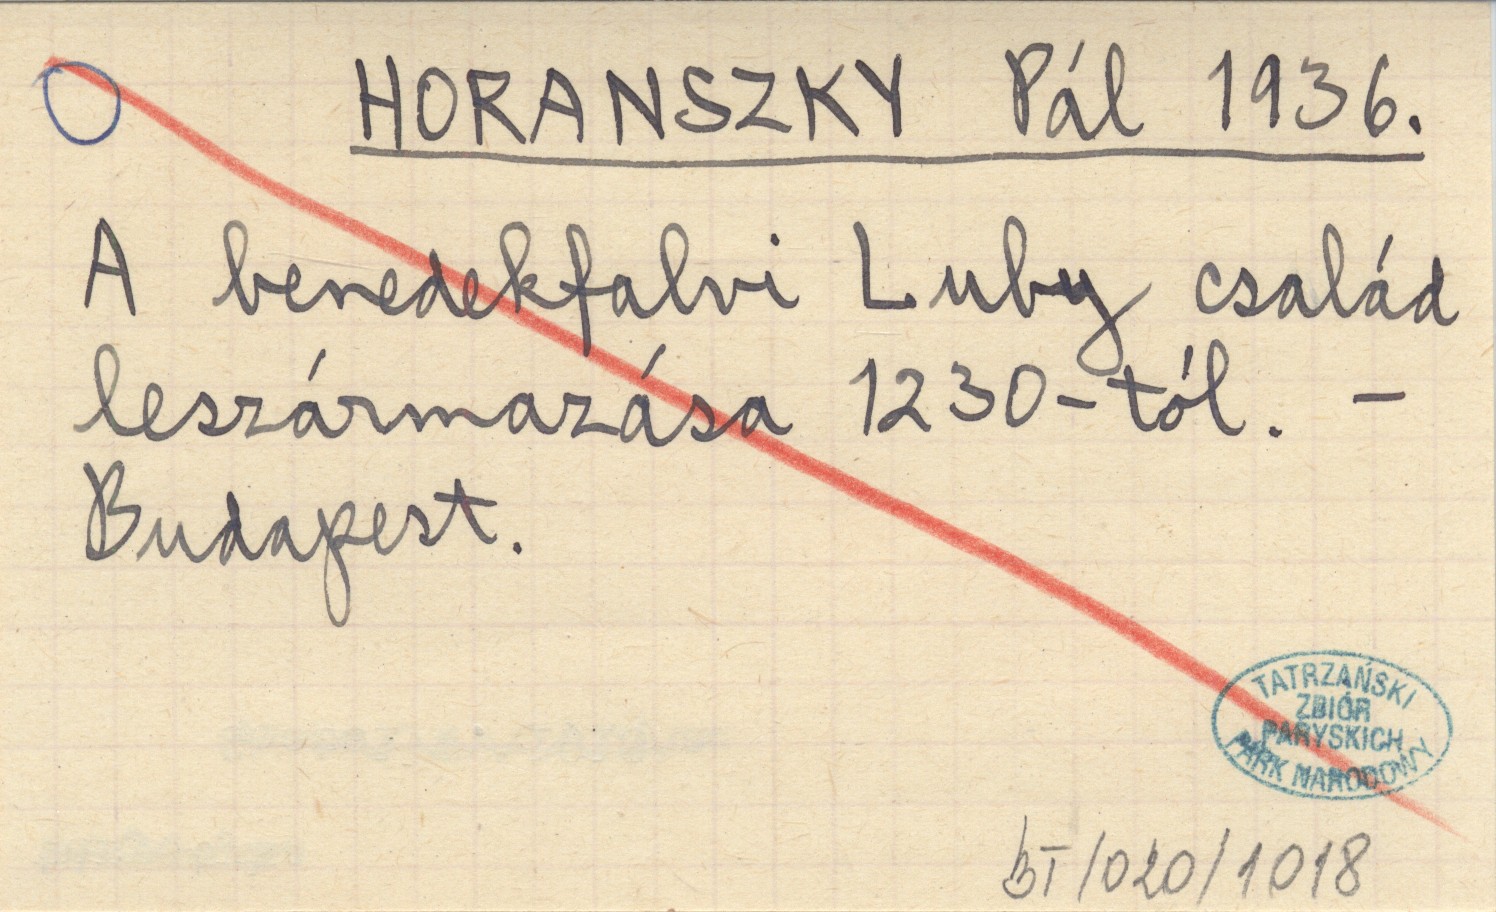 HORANSZKY Pál 1936.
A benedekfalvi Luby család
leszármazása 1230-tól. –
Budapest.
TATRZAŃSKI
ZBIÓR
PARYSKICH
PARK NARODOWY
BT/020/1018